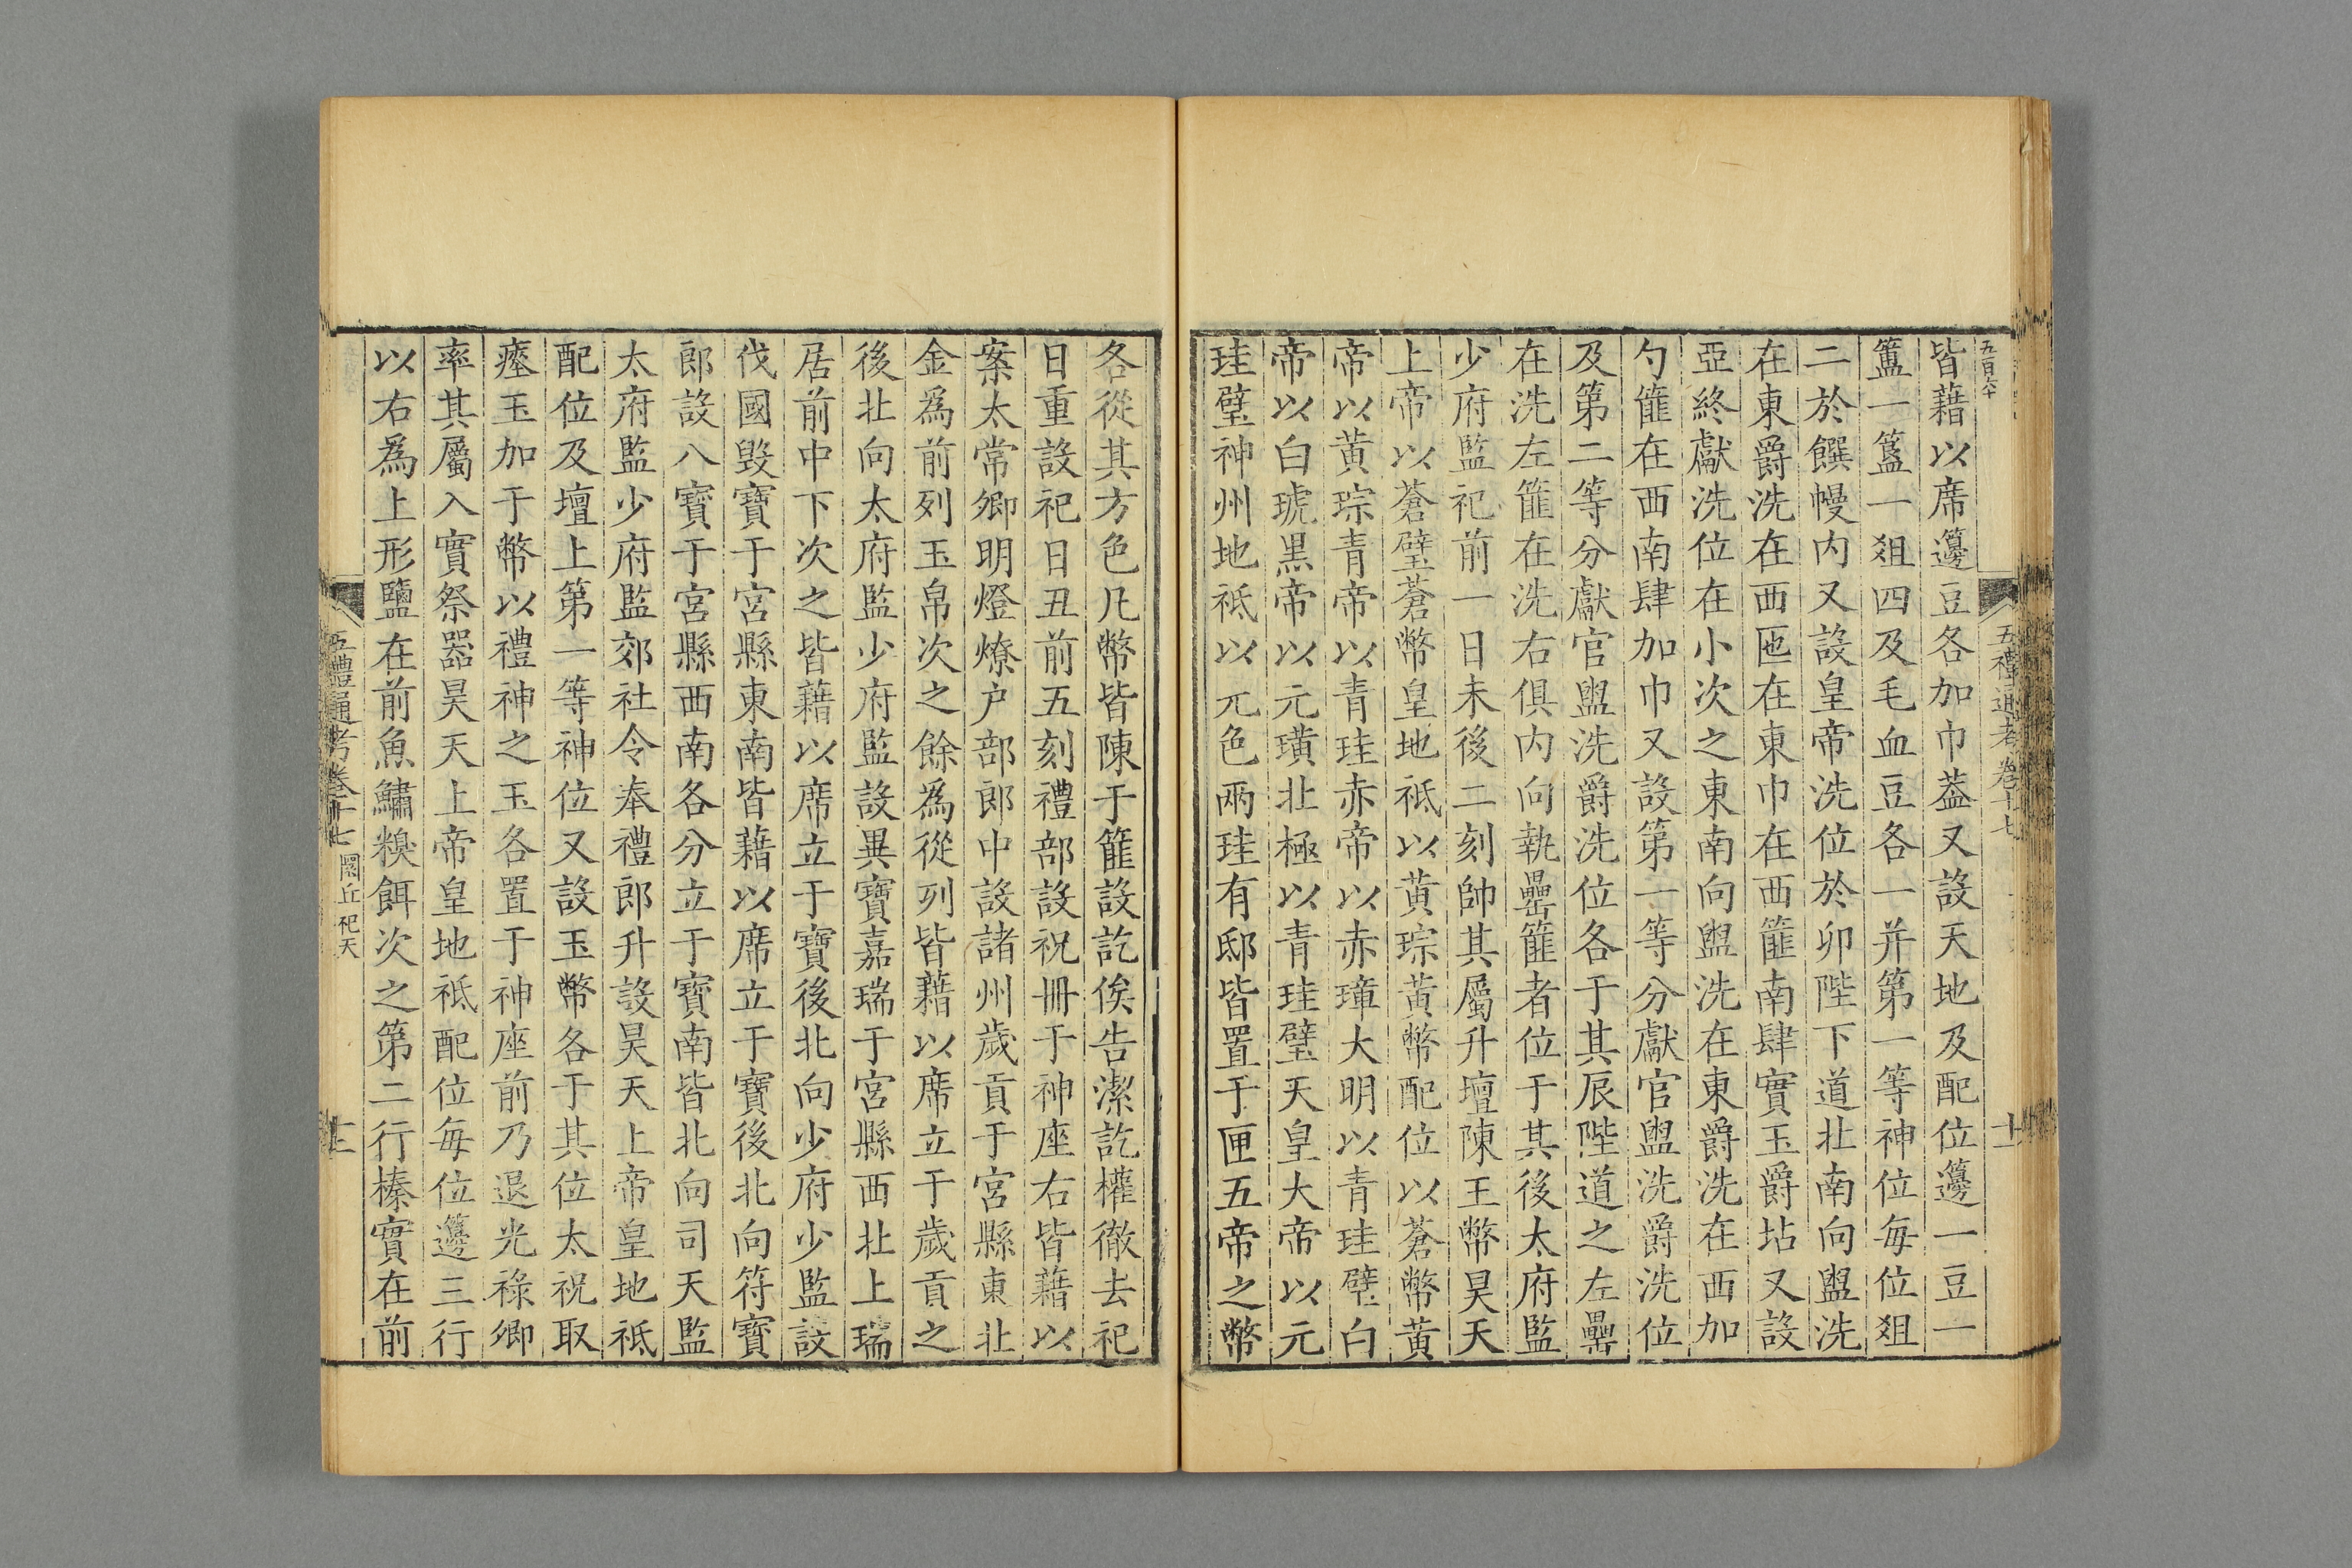 五百六十
五禮通考卷十七
十一
皆藉以席籩豆各加巾蓋又設天地及配位籩一豆一
簠一簋一俎四及毛血豆各一并第一等神位每位俎
二於饌幔内又設皇帝洗位於卯陛下道北南向盥洗
在東爵洗在西匜在東巾在西篚南肆實玉爵坫又設
亞終獻洗位在小次之東南向盥洗在東爵洗在西加
勺篚在西南肆加巾又設第一等分獻官盥洗爵洗位
及第二等分獻官盥洗爵洗位各于其辰陛道之左罍
在洗左篚在洗右俱内向執罍篚者位于其後太府監
少府監祀前一日未後二刻帥其屬升壇陳玉幣昊天
上帝以蒼璧蒼幣皇地祇以黄琮黄幣配位以蒼幣黄
帝以黄琮青帝以青珪赤帝以赤璋大明以青珪璧白
帝以白琥黒帝以元璜北極以青珪璧天皇大帝以元
珪璧神州地祇以元色兩珪有邸皆置于匣五帝之幣
各從其方色凡幣皆陳于篚設訖俟告潔訖權徹去祀
日重設祀日丑前五刻禮部設祝冊于神座右皆藉以
案太常卿明燈燎户部郎中設諸州歲貢于宮縣東北
金爲前列玉帛次之餘爲從列皆藉以席立于歲貢之
後北向太府監少府監設異寶嘉瑞于宮縣西北上瑞
居前中下次之皆藉以席立于寶後北向少府少監設
伐國毀寶于宮縣東南皆藉以席立于寶後北向符寶
郎設八寶于宮縣西南各分立于寶南皆北向司天監
太府監少府監郊社令奉禮郎升設昊天上帝皇地祇
配位及壇上第一等神位又設玉幣各于其位太祝取
瘞玉加于幣以禮神之玉各置于神座前乃退光祿卿
率其屬入實祭器昊天上帝皇地祇配位每位籩三行
以右爲上形鹽在前魚鱐糗餌次之第二行榛實在前
五禮通考卷十七 圜丘祀天